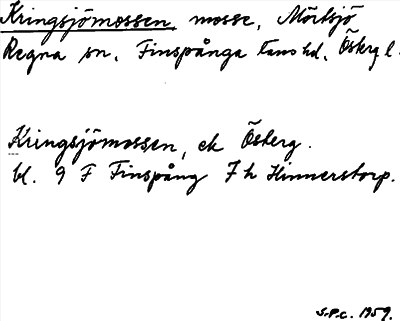 Kringsjömossen, mosse, Mörtsjö
Regna sn, Finspånga läns hd, Östergl.
Kringsjömossen, ek Österg.
bl. 9 F Finspång 7 h Hinnerstorp.
S.P.c. 1959.